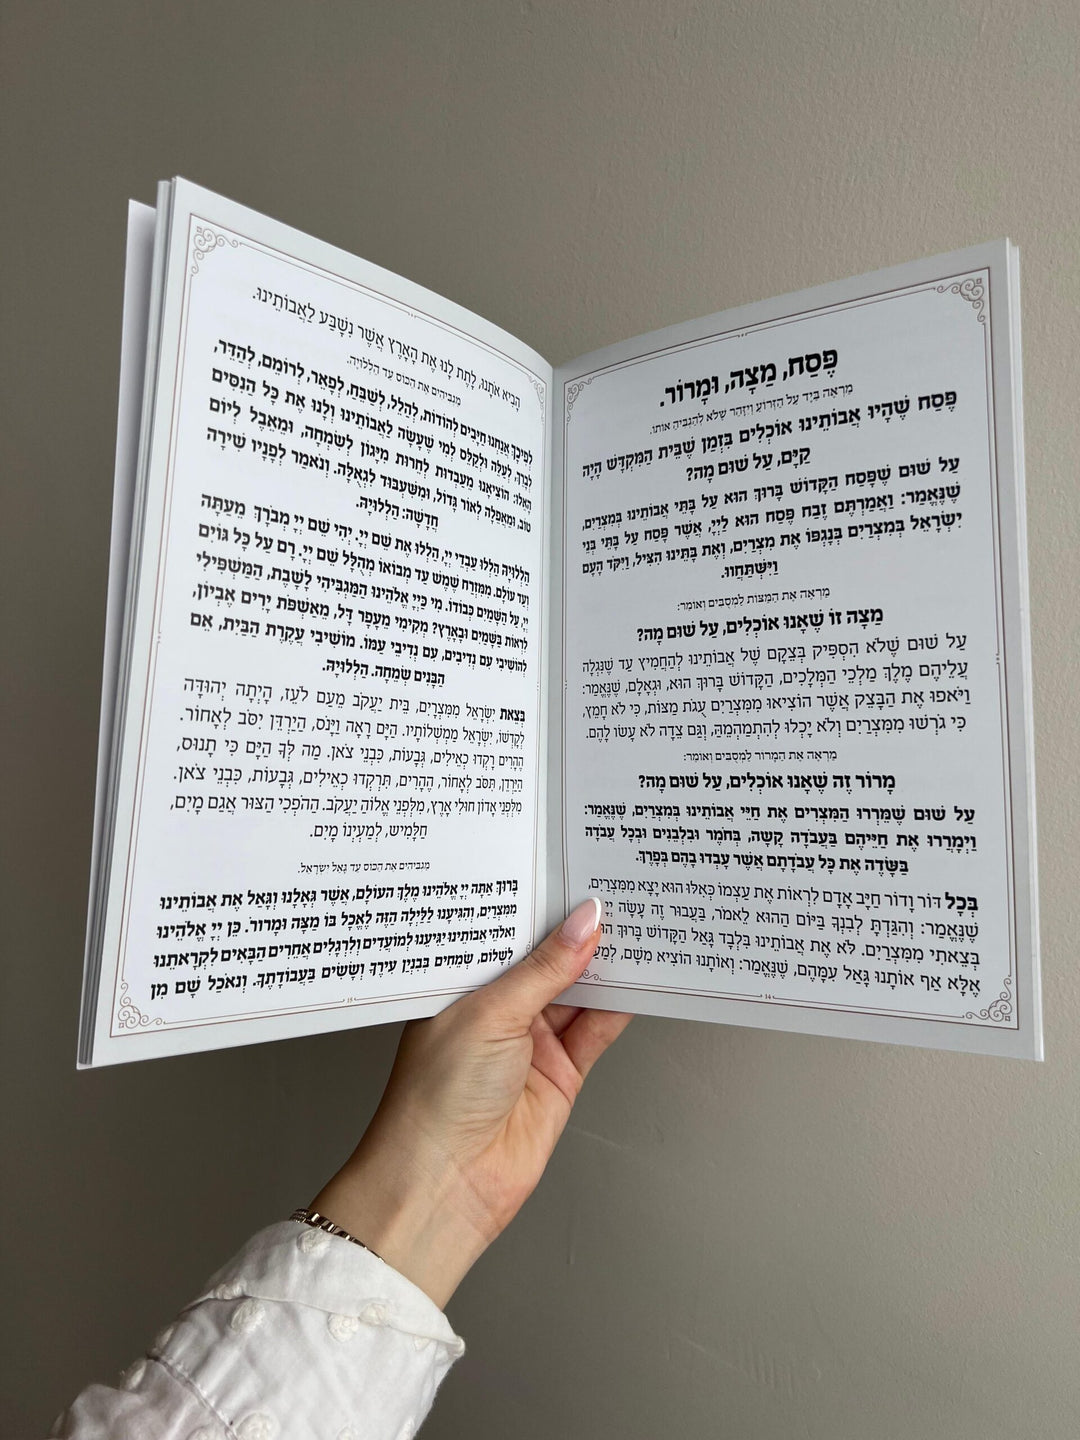 פֶּסַח, מַצָּה, וּמָרוֹר.
מַרְאֶה בַּיָּד עַל הַזְּרוֹעַ וְיִזָּהֵר שֶׁלֹּא לְהַגְבִּיהַּ אוֹתוֹ.
פֶּסַח שֶׁהָיוּ אֲבוֹתֵינוּ אוֹכְלִים בִּזְמַן שֶׁבֵּית הַמִּקְדָּשׁ הָיָה
קַיָּם, עַל שׁוּם מָה?
עַל שׁוּם שֶׁפָּסַח הַקָּדוֹשׁ בָּרוּךְ הוּא עַל בָּתֵּי אֲבוֹתֵינוּ בְּמִצְרַיִם,
שֶׁנֶּאֱמַר: וַאֲמַרְתֶּם זֶבַח פֶּסַח הוּא לַיְיָ, אֲשֶׁר פָּסַח עַל בָּתֵּי בְּנֵי
יִשְׂרָאֵל בְּמִצְרַיִם בְּנָגְפּוֹ אֶת מִצְרַיִם, וְאֶת בָּתֵּינוּ הִצִּיל, וַיִּקֹּד הָעָם
וַיִּשְׁתַּחֲווּ.
מַרְאֶה אֶת הַמַּצּוֹת לַמְסֻבִּים וְאוֹמֵר:
מַצָּה זוֹ שֶׁאָנוּ אוֹכְלִים, עַל שׁוּם מָה?
עַל שׁוּם שֶׁלֹּא הִסְפִּיק בְּצֵקָם שֶׁל אֲבוֹתֵינוּ לְהַחֲמִיץ עַד שֶׁנִּגְלָה
עֲלֵיהֶם מֶלֶךְ מַלְכֵי הַמְּלָכִים, הַקָּדוֹשׁ בָּרוּךְ הוּא, וּגְאָלָם, שֶׁנֶּאֱמַר:
וַיֹּאפוּ אֶת הַבָּצֵק אֲשֶׁר הוֹצִיאוּ מִמִּצְרַיִם עֻגֹת מַצּוֹת, כִּי לֹא חָמֵץ,
כִּי גֹרְשׁוּ מִמִּצְרַיִם וְלֹא יָכְלוּ לְהִתְמַהְמֵהַּ, וְגַם צֵדָה לֹא עָשׂוּ לָהֶם.
מַרְאֶה אֶת הַמָּרוֹר לַמְסֻבִּים וְאוֹמֵר:
מָרוֹר זֶה שֶׁאָנוּ אוֹכְלִים, עַל שׁוּם מָה?
עַל שׁוּם שֶׁמֵּרְרוּ הַמִּצְרִים אֶת חַיֵּי אֲבוֹתֵינוּ בְּמִצְרַיִם, שֶׁנֶּאֱמַר:
וַיְמָרֲרוּ אֶת חַיֵּיהֶם בַּעֲבֹדָה קָשָׁה, בְּחֹמֶר וּבִלְבֵנִים וּבְכָל עֲבֹדָה
בַּשָּׂדֶה אֶת כָּל עֲבֹדָתָם אֲשֶׁר עָבְדוּ בָהֶם בְּפָרֶךְ.
בְּכָל דּוֹר וָדוֹר חַיָּב אָדָם לִרְאוֹת אֶת עַצְמוֹ כְּאִלּוּ הוּא יָצָא מִמִּצְרַיִם,
שֶׁנֶּאֱמַר: וְהִגַּדְתָּ לְבִנְךָ בַּיּוֹם הַהוּא לֵאמֹר, בַּעֲבוּר זֶה עָשָׂה יְיָ
בְּצֵאתִי מִמִּצְרַיִם. לֹא אֶת אֲבוֹתֵינוּ בִּלְבָד גָּאַל הַקָּדוֹשׁ בָּרוּךְ
אֶלָּא אַף אוֹתָנוּ גָּאַל עִמָּהֶם, שֶׁנֶּאֱמַר: וְאוֹתָנוּ הוֹצִיא מִשָּׁם,
14
הָבִיא אֹתָנוּ, לָתֶת לָנוּ אֶת הָאָרֶץ אֲשֶׁר נִשְׁבַּע לַאֲבוֹתֵינוּ.
מַגְבִּיהִים אֶת הַכּוֹס עַד הַלְלוּיָהּ.
לְפִיכָךְ אֲנַחְנוּ חַיָּבִים לְהוֹדוֹת, לְהַלֵּל, לְשַׁבֵּחַ, לְפָאֵר, לְרוֹמֵם, לְהַדֵּר,
לְבָרֵךְ, לְעַלֵּה וּלְקַלֵּס לְמִי שֶׁעָשָׂה לַאֲבוֹתֵינוּ וְלָנוּ אֶת כָּל הַנִּסִּים
הָאֵלּוּ: הוֹצִיאָנוּ מֵעַבְדוּת לְחֵרוּת מִיָּגוֹן לְשִׂמְחָה, וּמֵאֵבֶל לְיוֹם
טוֹב, וּמֵאֲפֵלָה לְאוֹר גָּדוֹל, וּמִשִּׁעְבּוּד לִגְאֻלָּה. וְנֹאמַר לְפָנָיו שִׁירָה
חֲדָשָׁה: הַלְלוּיָהּ.
הַלְלוּיָהּ הַלְלוּ עַבְדֵי יְיָ, הַלְלוּ אֶת שֵׁם יְיָ. יְהִי שֵׁם יְיָ מְבֹרָךְ מֵעַתָּה
וְעַד עוֹלָם. מִמִּזְרַח שֶׁמֶשׁ עַד מְבוֹאוֹ מְהֻלָּל שֵׁם יְיָ. רָם עַל כָּל גּוֹיִם
יְיָ, עַל הַשָּׁמַיִם כְּבוֹדוֹ. מִי כַּיְיָ אֱלֹהֵינוּ הַמַּגְבִּיהִי לָשָׁבֶת, הַמַּשְׁפִּילִי
לִרְאוֹת בַּשָּׁמַיִם וּבָאָרֶץ? מְקִימִי מֵעָפָר דָּל, מֵאַשְׁפֹּת יָרִים אֶבְיוֹן,
לְהוֹשִׁיבִי עִם נְדִיבִים, עִם נְדִיבֵי עַמּוֹ. מוֹשִׁיבִי עֲקֶרֶת הַבַּיִת, אֵם
הַבָּנִים שְׂמֵחָה. הַלְלוּיָהּ.
בְּצֵאת יִשְׂרָאֵל מִמִּצְרָיִם, בֵּית יַעֲקֹב מֵעַם לֹעֵז, הָיְתָה יְהוּדָה
לְקָדְשׁוֹ, יִשְׂרָאֵל מַמְשְׁלוֹתָיו. הַיָּם רָאָה וַיָּנֹס, הַיַּרְדֵּן יִסֹּב לְאָחוֹר.
הֶהָרִים רָקְדוּ כְאֵילִים, גְּבָעוֹת, כִּבְנֵי צֹאן. מַה לְּךָ הַיָּם כִּי תָנוּס,
הַיַּרְדֵּן, תִּסֹּב לְאָחוֹר, הֶהָרִים, תִּרְקְדוּ כְאֵילִים, גְּבָעוֹת, כִּבְנֵי צֹאן.
מִלִּפְנֵי אָדוֹן חוּלִי אָרֶץ, מִלִּפְנֵי אֱלוֹהַּ יַעֲקֹב. הַהֹפְכִי הַצּוּר אֲגַם מָיִם,
חַלָּמִישׁ, לְמַעְיְנוֹ מָיִם.
מַגְבִּיהִים אֶת הַכּוֹס עַד גָּאַל יִשְׂרָאֵל.
בָּרוּךְ אַתָּה יְיָ אֱלֹהֵינוּ מֶלֶךְ הָעוֹלָם, אֲשֶׁר גְּאָלָנוּ וְגָאַל אֶת אֲבוֹתֵינוּ
מִמִּצְרַיִם, וְהִגִּיעָנוּ לַלַּיְלָה הַזֶּה לֶאֱכָל בּוֹ מַצָּה וּמָרוֹר. כֵּן יְיָ אֱלֹהֵינוּ
וֵאלֹהֵי אֲבוֹתֵינוּ יַגִּיעֵנוּ לְמוֹעֲדִים וְלִרְגָלִים אֲחֵרִים הַבָּאִים לִקְרָאתֵנוּ
לְשָׁלוֹם, שְׂמֵחִים בְּבִנְיַן עִירֶךָ וְשָׂשִׂים בַּעֲבוֹדָתֶךָ. וְנֹאכַל שָׁם מִן
15